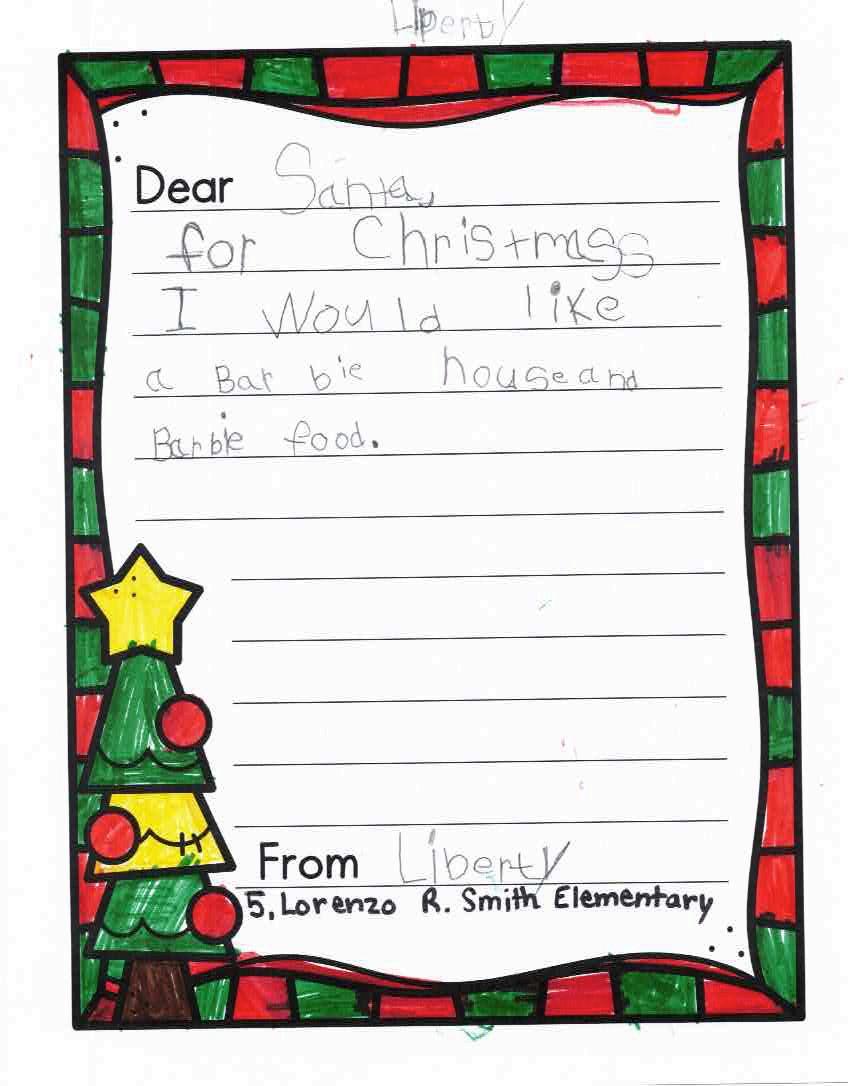 Liberty
Dear Santa,
for Christmass
I Would like
a Bar bie house and
Barbie food.
From Liberty
5, Lorenzo R. Smith Elementary